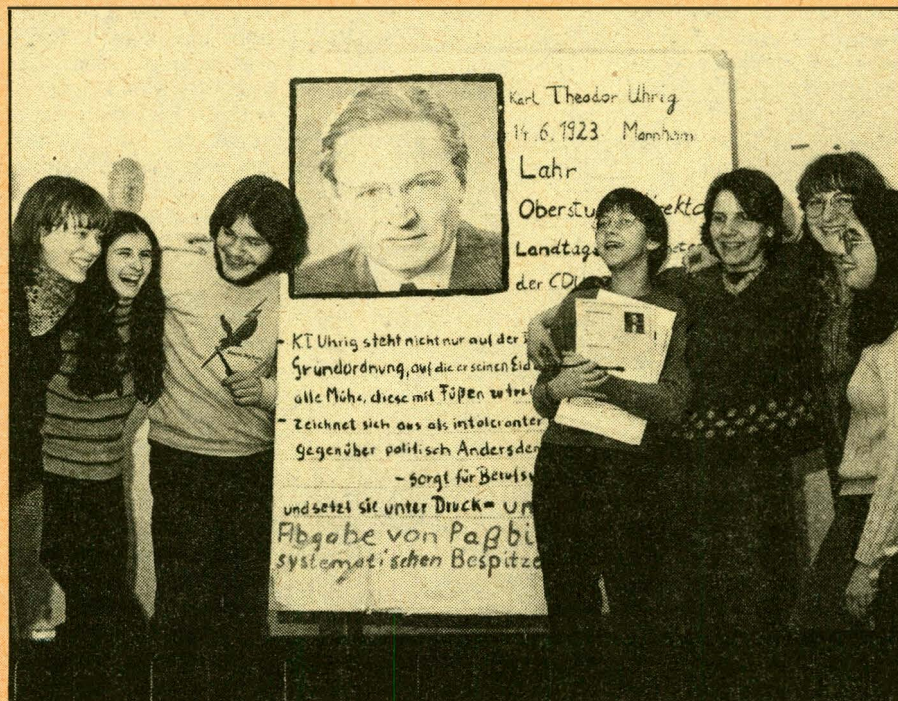 Karl Theodor Uhrig
14.6.1923 Mannheim
Lahr
Oberstu
Landtags
der CDU
- KT Uhrig steht nicht nur auf der
Grundordnung, auf die er seinen Eid
alle Mühe, diese mit Füßen zu tret
- zeichnet sich aus als intoleranter
gegenüber politisch Andersden
- sorgt für Berufsv
und setzt sie unter Druck- un
Abgabe von Paßbi
systematischen Bespitze